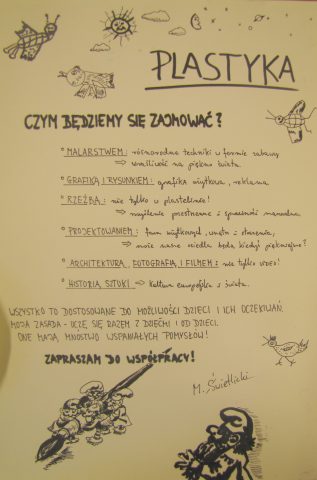 PLASTYKA
CZYM BĘDZIEMY SIĘ ZAJMOWAĆ?
° MALARSTWEM: różnorodne techniki w formie zabawy
⇒ wrażliwość na piękno świata.
° GRAFIKĄ I RYSUNKIEM: grafika użytkowa, reklama.
° RZEŹBĄ: nie tylko w plastelinie!
⇒ myślenie przestrzenne i sprawność manualna
° PROJEKTOWANIEM: form użytkowych, wnętrz i otoczenia,
⇒ może nasze osiedla będą kiedyś piękniejsze?
° ARCHITEKTURĄ, FOTOGRAFIĄ I FILMEM: nie tylko video!
° HISTORIĄ SZTUKI ⇒ kultura europejska i świata.
WSZYSTKO TO DOSTOSOWANE DO MOŻLIWOŚCI DZIECI I ICH OCZEKIWAŃ.
MOJA ZASADA - UCZĘ SIĘ RAZEM Z DZIEĆMI I OD DZIECI.
ONE MAJĄ MNÓSTWO WSPANIAŁYCH POMYSŁÓW!
ZAPRASZAM DO WSPÓŁPRACY!
M. Świetlicki